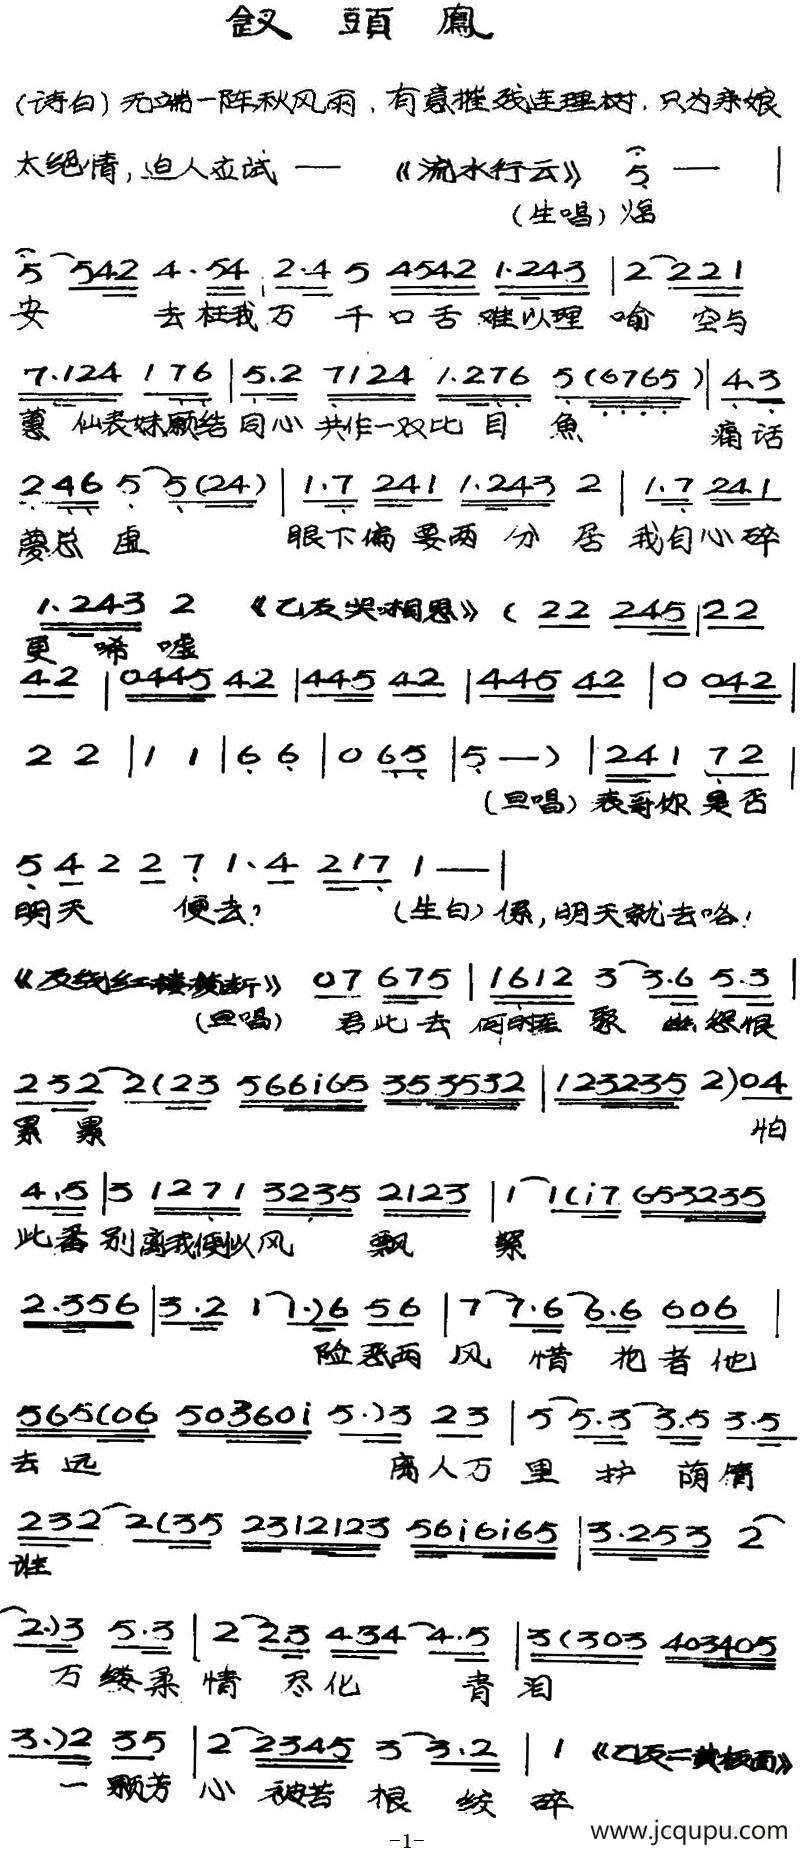 釵頭鳳
(诗白)无端一阵秋风雨，有意摧残连理树，只为亲娘
太绝情，迫人应试 — 《流水行云》 5 — |
(生唱)焰
5 542 4·54 2·4 5 4542 1·243 | 2 221
安 去枉我万千口舌难以理喻 空与
7·124 176 | 5·2 7124 1·276 5(6765) | 4·3
蕙仙表妹愿结同心共作一双比目魚 痛话
246 5 5(24) | 1·7 241 1·243 2 | 1·7 241
夢总虚 眼下偏要两分居我自心碎
1·243 2 《乙反哭相思》 ( 22 245 | 22
更唏嘘
42 | 0445 42 | 445 42 | 445 42 | 0 042 |
2 2 | 1 1 | 6 6 | 0 65 | 5 — ) | 241 72 |
(旦唱)表哥你是否
5 4 2 2 7 1·4 217 1 — |
明天 便去? (生白)係,明天就去咯!
《反线红楼》 07 675 | 1612 3 3·6 5·3 |
(旦唱) 君此去何时 聚 怨恨
232 2(23 566i65 353532 | 123235 2)04
累累 怕
4·5 | 3 1271 3235 2123 | 1 1(i7 653235
此番别离我便似风 飘 絮
2·356 | 3·2 1 1·)6 56 | 7 7·6 6·6 606 |
险恶雨风惜花者他
565(06 503601 5·)3 23 | 5 5·3 3·5 3·5
去远 离人万里护荫情
232 2(35 2312123 56i6i65 | 3·253 2
谁
2·)3 5·3 | 2 2·3 434 4·5 | 3(303 403405
万缕柔情尽化 青泪
3·)2 35 | 2 2345 3 3·2 | 1 《乙反二黄板面》
一颗芳心被苦 根绞碎
-1-
www.jcqupu.com